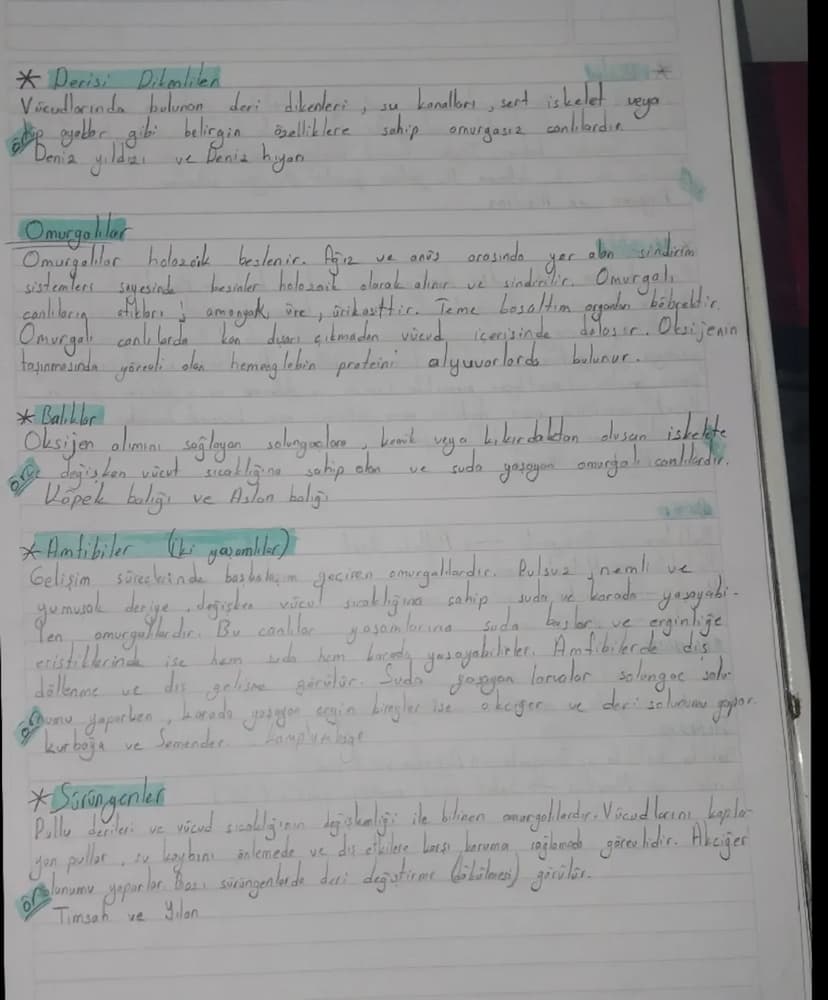 * Derisi Dikenliler
Vücudlarında bulunan deri dikenleri, su kanalları, sert iskelet veya
tüp ayaklar gibi belirgin özelliklere sahip omurgasız canlılardır.
ör: Deniz yıldızı ve Deniz hıyarı
Omurgalılar
Omurgalılar holozoik beslenir. Ağız ve anüs arasında yer alan sindirim
sistemleri sayesinde besinler holozoik olarak alınır ve sindirilir. Omurgalı
canlıların atıkları; amonyak, üre, ürikasittir. Teme boşaltım organları böbrektir.
Omurgalı canlılarda kan dışarı çıkmadan vücud içerisinde dolaşır. Oksijenin
taşınmasında görevli olan hemoglebin proteini alyuvarlarda bulunur.
* Balıklar
Oksijen alımını sağlayan solungaçlara, kemik veya kıkırdaktan oluşan iskelete
ve değişken vücut sıcaklığına sahip olan ve suda yaşayan omurgalı canlılardır.
ör: Köpek balığı ve Aslan balığı
* Amfibiler (iki yaşamlılar)
Gelişim süreçlerinde başkalaşım geçiren omurgalılardır. Pulsuz, nemli ve
yumuşak deriye, değişken vücut sıcaklığına sahip suda ve karada yaşayabi-
len, omurgalılardır. Bu canlılar yaşamlarına suda başlar ve erginliğe
eriştiklerinde ise hem suda hem karada yaşayabilirler. Amfibilerde dış
döllenme ve dış gelişme görülür. Suda yaşayan larvalar solungaç solu-
numu yaparken, karada yaşayan ergin bireyler ise akciğer ve deri solunumu yapar.
ör: kurbağa ve Semender.
* Sürüngenler
Pullu derileri ve vücud sıcaklığının değişkenliği ile bilinen omurgalılardır. Vücudlarını kapla-
yan pullar, su kaybını önlemede ve dış etkilere karşı koruma sağlamada görevlidir. Akciğer
solunumu yaparlar. Bazı sürüngenlerde deri değiştirme (dökülmesi) görülür.
ör: Timsah ve Yılan